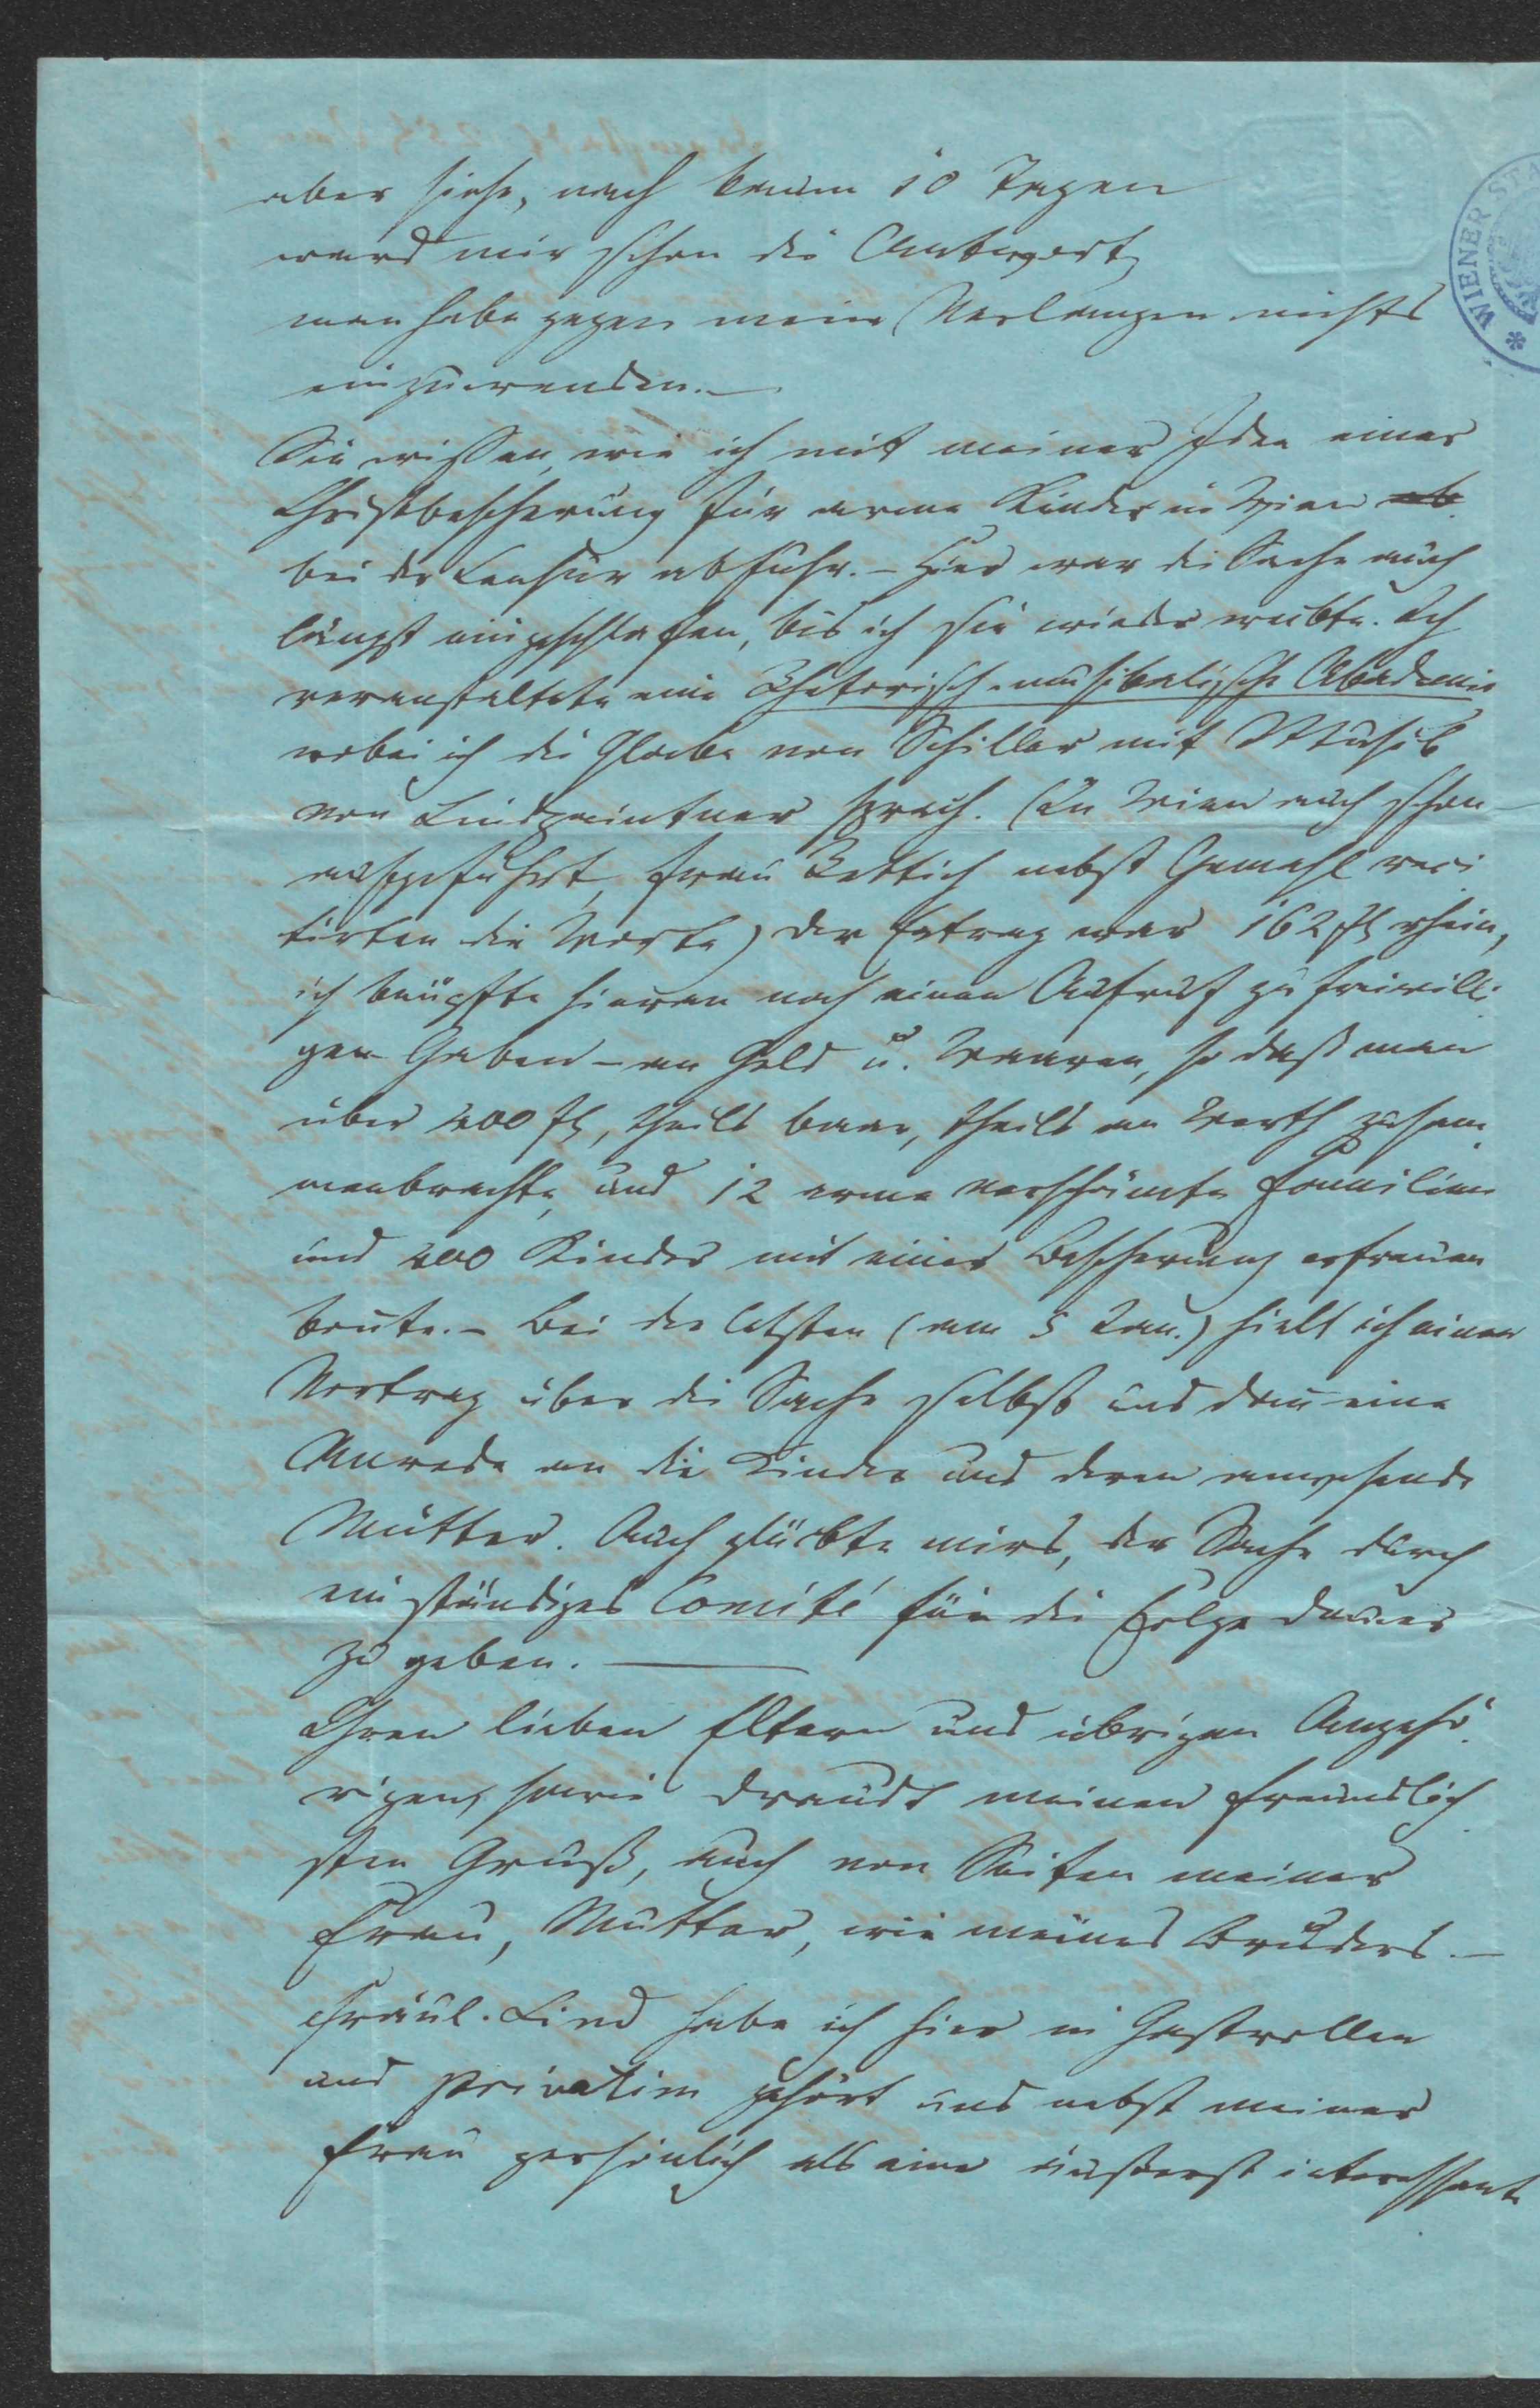 aber siehe, nach kaum 10 Tagen
ward mir schon die Antwort,
man habe gegen mein Verlangen nichts
einzuwenden. —
Sie wissen, wie ich mit meiner Idee einer
Christbescherung für arme Kinder in Wien ab
bei der Censur abfuhr. – Hier war die Sache auch
längst eingeschlafen, bis ich sie wieder weckte. Ich
veranstaltete eine Rhetorisch-musikalische Akademie
wobei ich die Glocke von Schiller mit Musik
von Lindpaintner sprach. (In Wien auch schon
aufgeführt, Frau Rettich nebst Gemahl reci
tirten die Worte) Der Ertrag war 162 fl rhein,
ich knüpfte hieran noch einen Aufruf zu freiwilli
gen Gaben – an Geld u. Waaren, so daß man
über 400 fl, theils baar, theils an Werth zusam
menbrachte, und 12 arme verschämte Familien
und 200 Kinder mit einer Bescherung erfreuen
konnte. – Bei der letzten (am 5 Jan.) hielt ich einen
Vortrag über die Sache selbst und dann eine
Anrede an die Kinder und deren anwesende
Mütter. Auch glückte mirs, der Sache durch
ein ständiges Comité für die Folge Dauer
zu geben. —
Ihren lieben Eltern und übrigen Angehö
rigen, sowie Draudt meinen freundlich
sten Gruß, auch von Seiten meiner
Frau, Mutter, wie meines Bruders. —
Fräul. Lind habe ich hier in Gastrollen
und privatim gehört und nebst meiner
Frau persönlich als eine äußerst interessante
WIENER